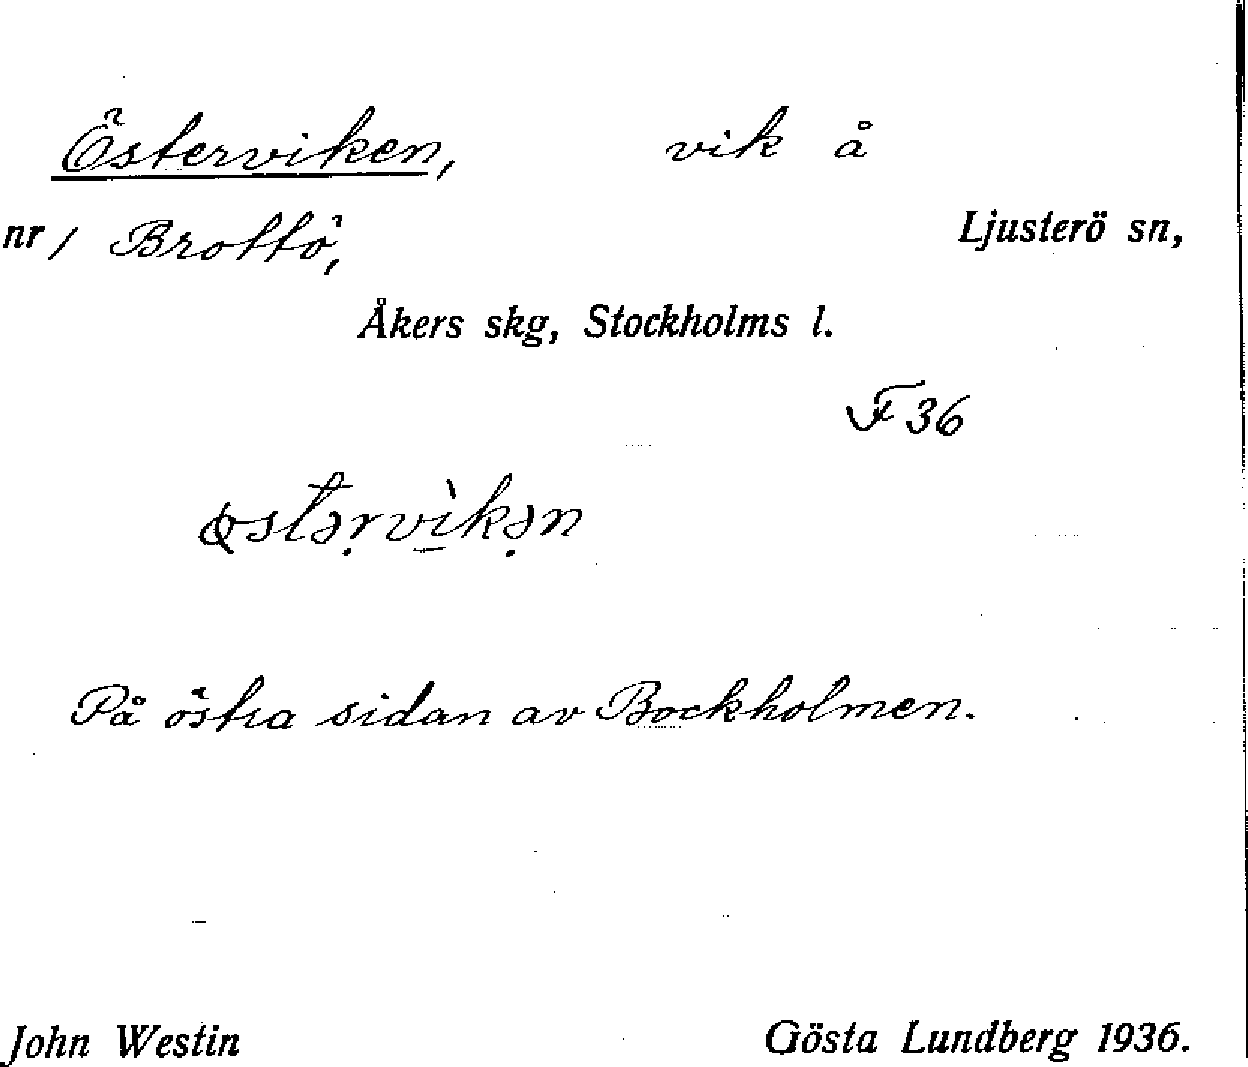 Österviken, vik å
nr 1 Brottö, Ljusterö sn,
Åkers skg, Stockholms l.
F 36
På östra sidan av Bockholmen.
John Westin Gösta Lundberg 1936.